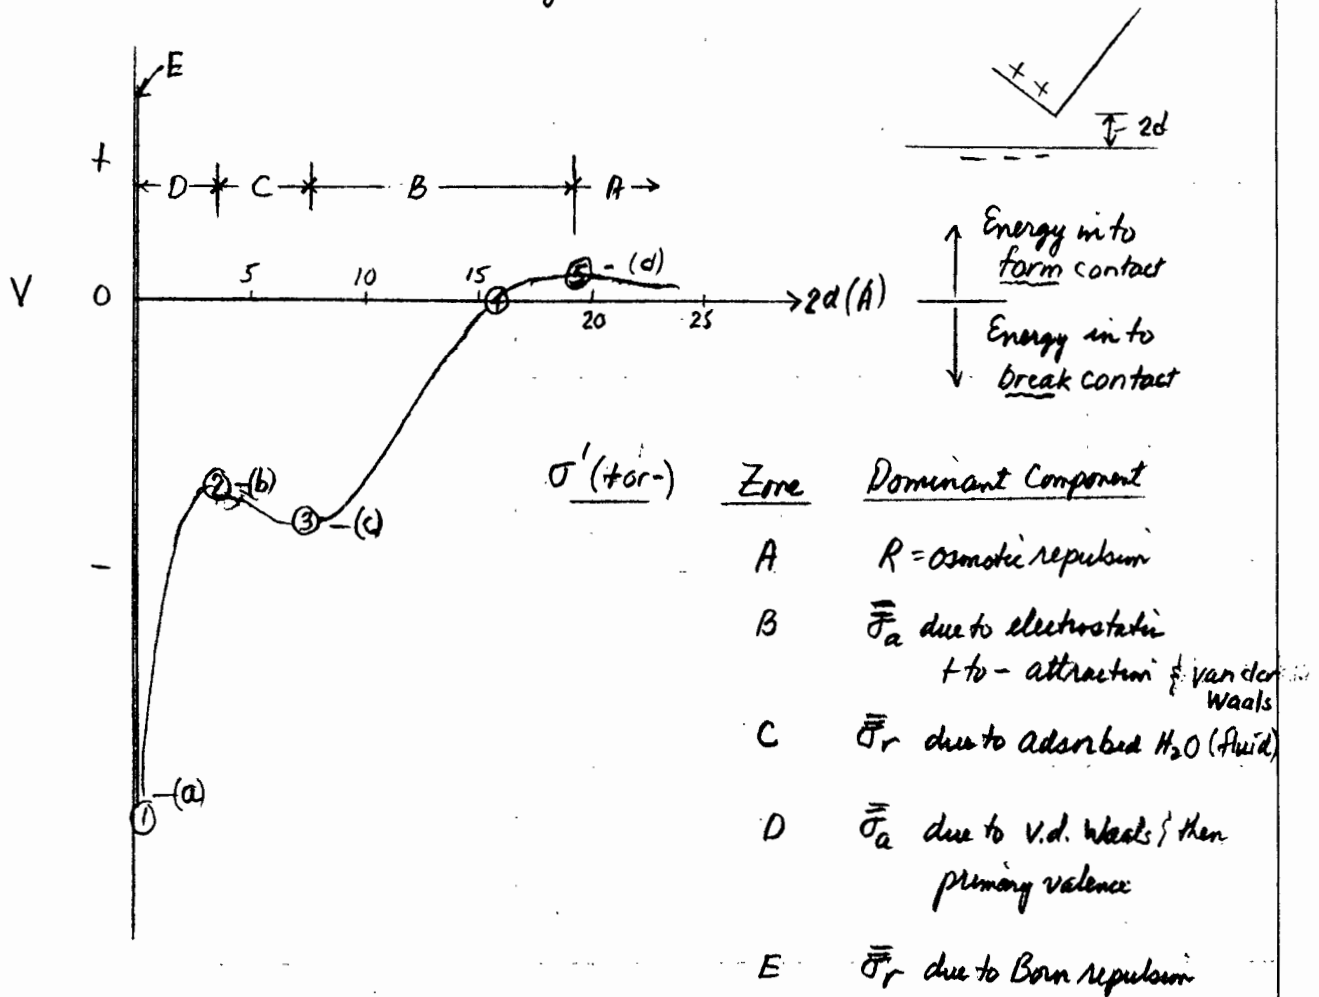 E
+
D C B A
5 10 15 20 25
V 0
2d(A)
① ② ③ ④ ⑤
(a)
(b)
(c)
(d)
+ +
2d
- - -
Energy in to
form contact
Energy in to
break contact
-
σ'(+or-) Zone Dominant Component
A R = osmotic repulsion
B σ̿a due to electrostatic
+ to - attraction & van der
Waals
C σ̿r due to adsorbed H₂O (fluid)
D σ̿a due to v.d. Waals & then
primary valence
E σ̿r due to Born repulsion